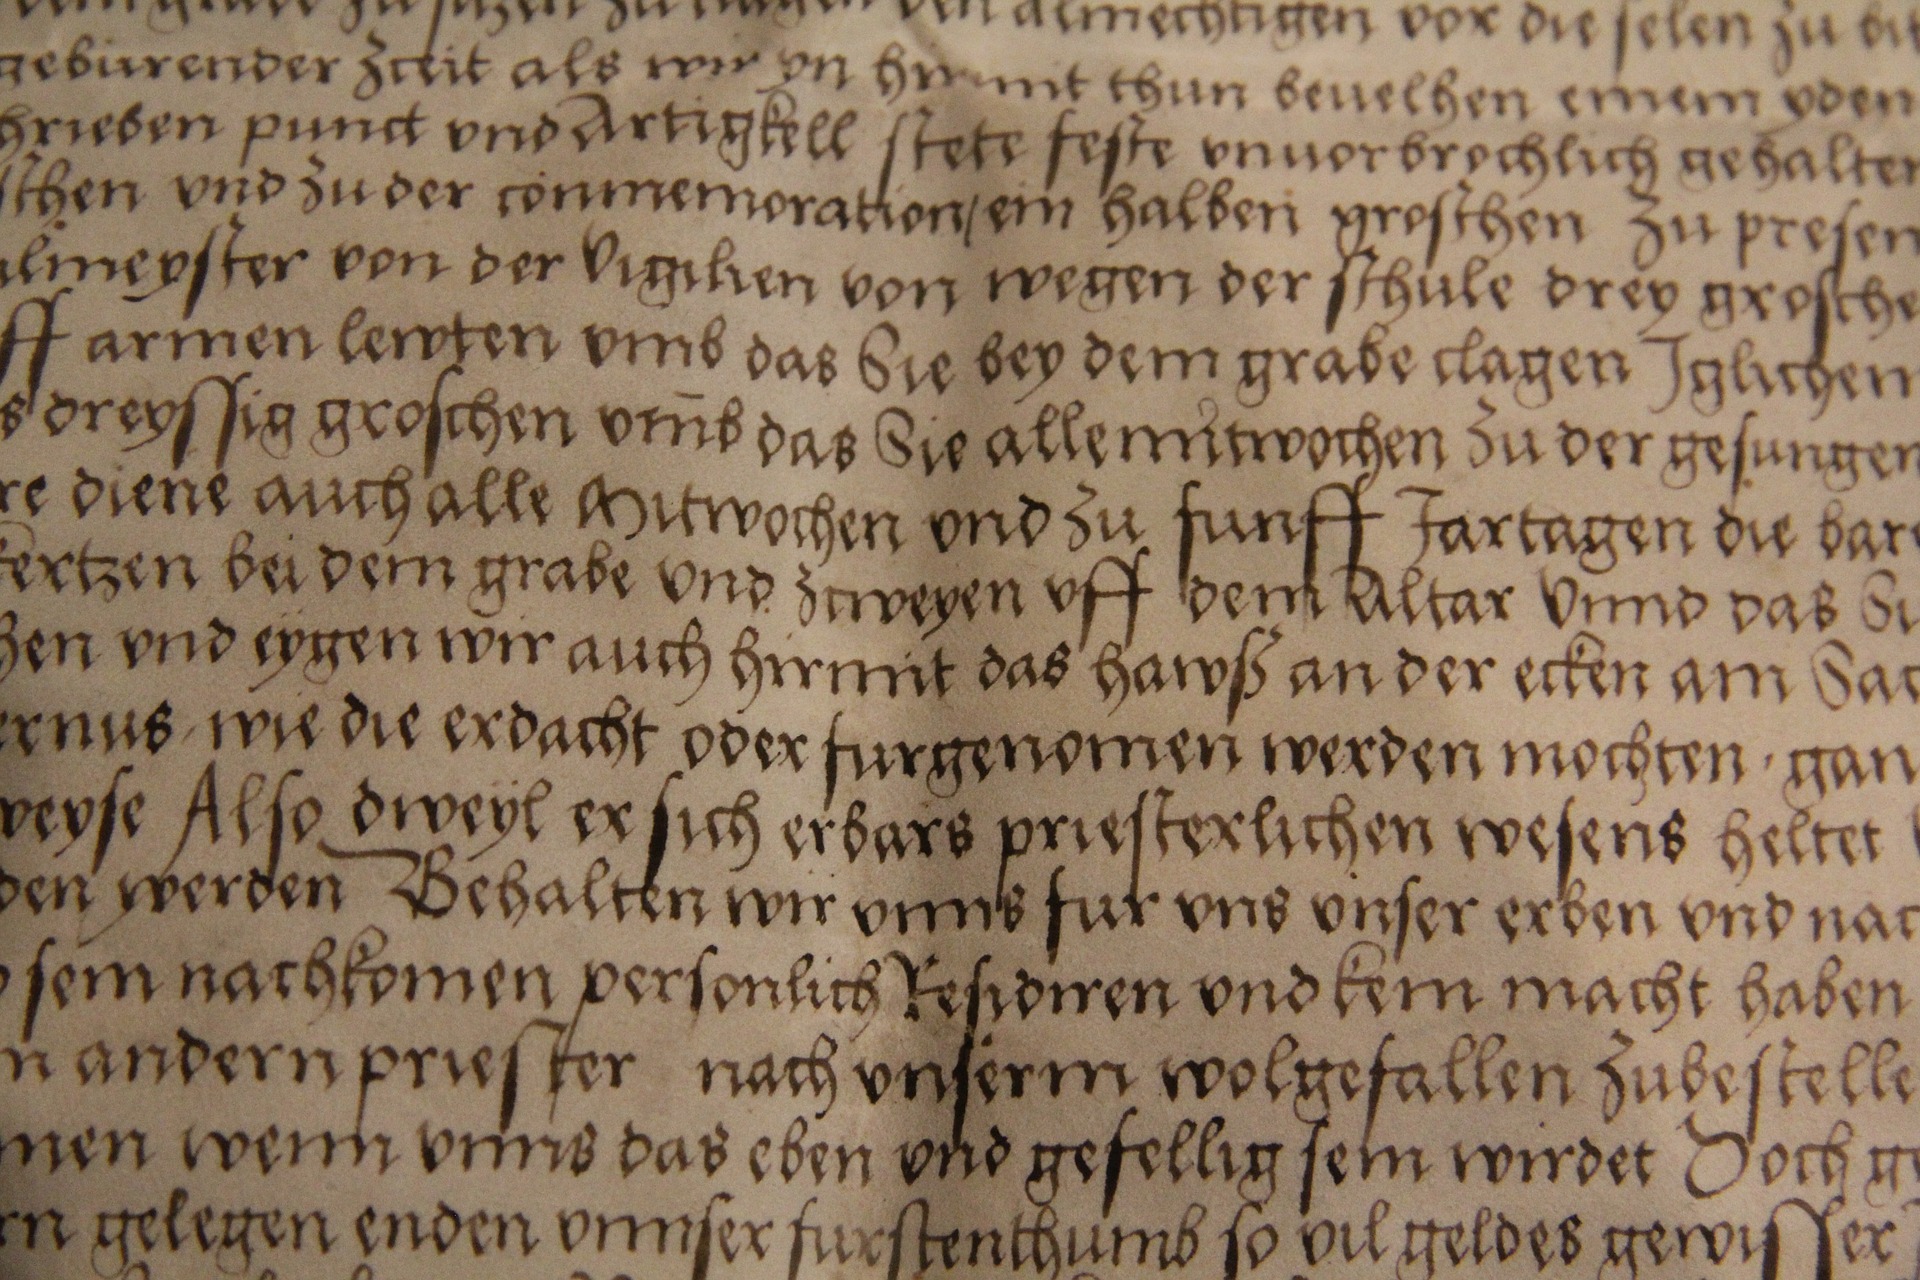 almechtigen vor die selen zu
geburender zceit als wir yn hirmit thun beuelhen einem yden
punct vnd Artigkell stete feste vnuorbrochlich gehalten
vnd zu der commemoration/ ein halben groschen zu presen
von der Vigilien von wegen der schule drey grosche
armen lewten vmb das Sie bey dem grabe clagen Iglichen
dreyssig groschen vmb das Sie alle mitwochen zu der gesungen
re diene auch alle Mitwochen vnd zu funff Jartagen die bare
kertzen bei dem grabe vnd zcweyen vff dem Altar Vnnd das Si
hen vnd eygen wir auch hirmit das hawß an der ecken am Sac
ernus wie die erdacht oder furgenomen werden mochten · gan
weyse Also dweyl er sich erbars priesterlichen wesens heltet
den werden Behalten wir vnns fur vns vnser erben vnd nac
sein nachkomen personlich Residiren vnd kein macht haben
n andern priester nach vnserm wolgefallen zubestelle
men wenn vnns das eben vnd gefellig sein wirdet Doch ge
rn gelegen enden vnnser furstenthumb so vil geldes gewisser